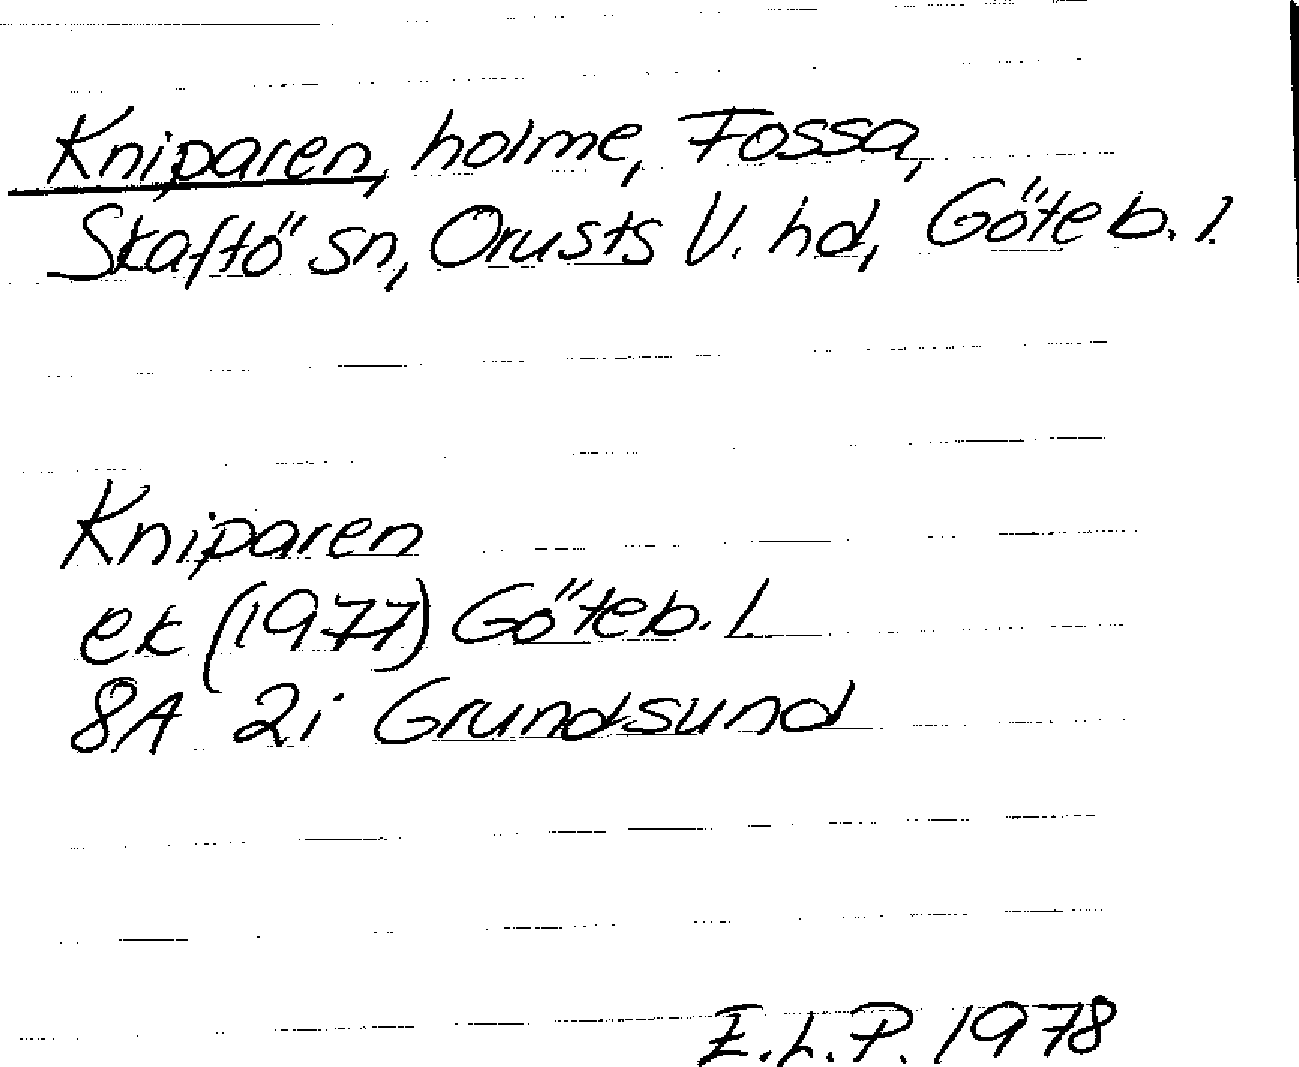 Kniparen, holme, Fossa,
Skaftö sn, Orusts V. hd, Göteb. l.
Kniparen
ek (1977) Göteb. l.
8A 2i Grundsund
E.L.P. 1978